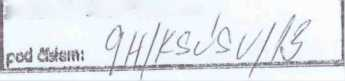 pod číslem: 9H/KSÚSV/13